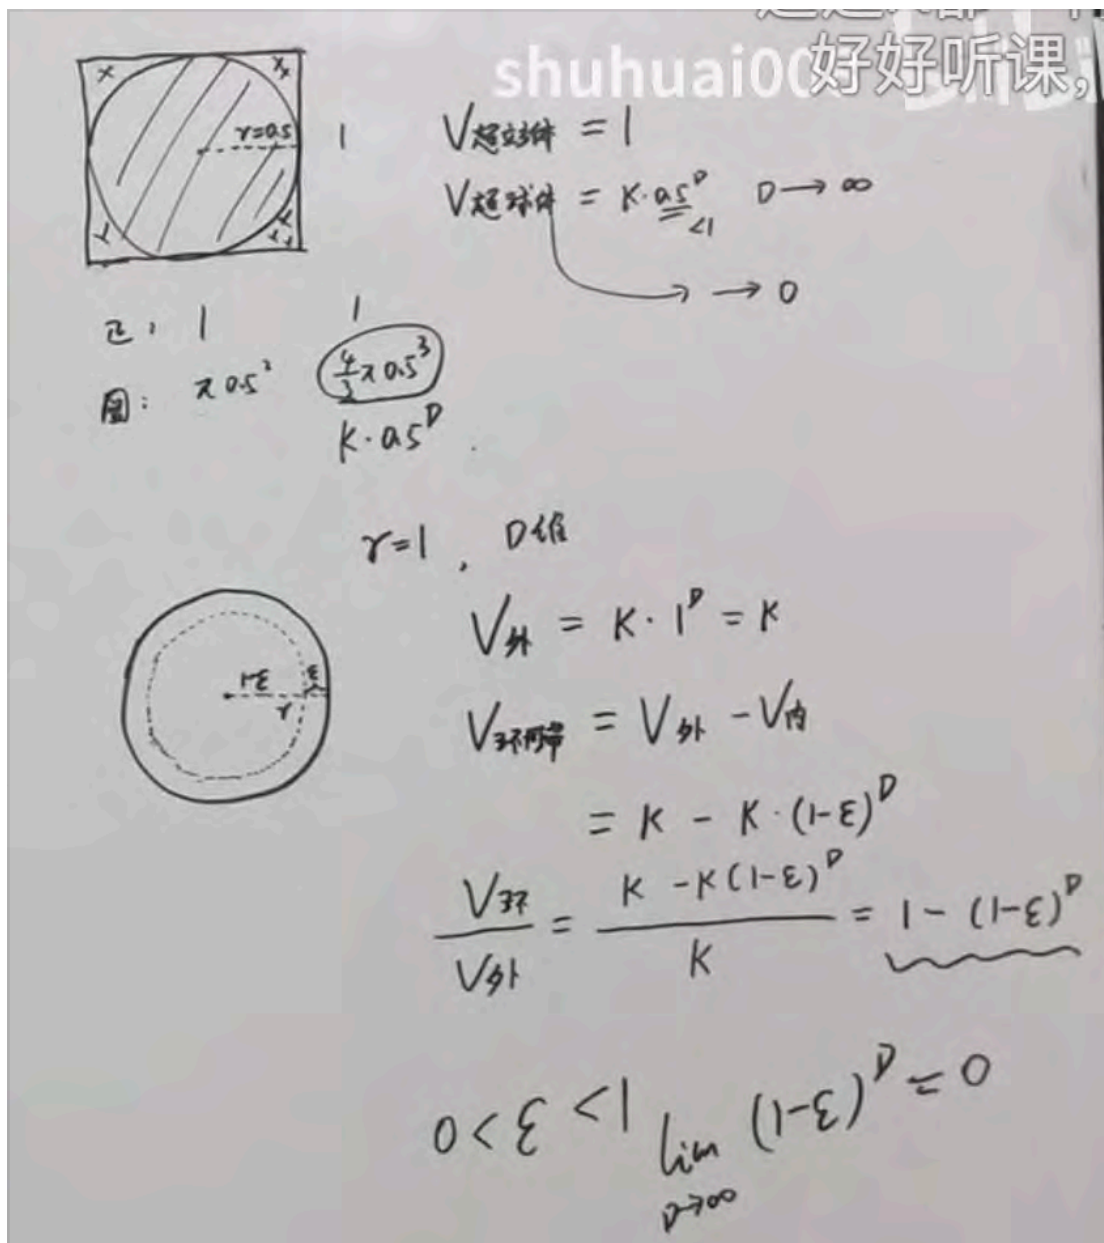 shuhuai00
好好听课,
r=0.5
1
V超立方体 = 1
V超球体 = K·0.5^D D→∞
<1
→ 0
正: 1 1
圆: π0.5² 4/3 π0.5³
K·0.5^D
r=1, D维
V外 = K·1^D = K
1-ε ε
r
V环形带 = V外 - V内
= K - K·(1-ε)^D
V环/V外 = K-K(1-ε)^D/K = 1-(1-ε)^D
0<ε<1 lim D→∞ (1-ε)^D = 0